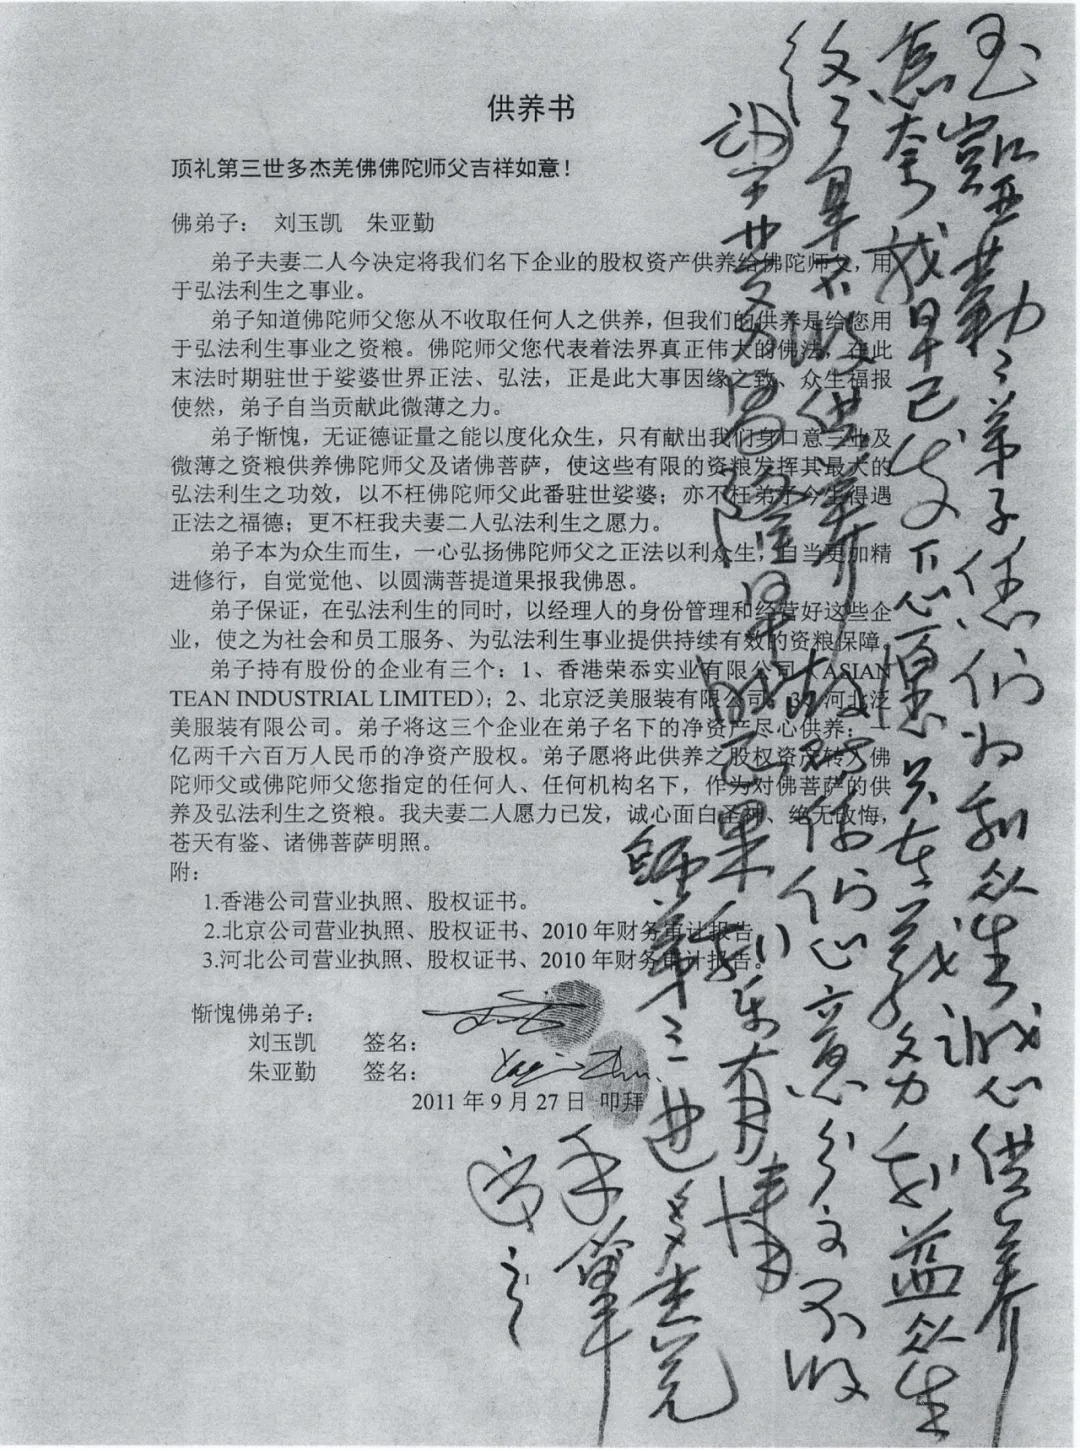 供养书
顶礼第三世多杰羌佛佛陀师父吉祥如意！
佛弟子： 刘玉凯 朱亚勤
弟子夫妻二人今决定将我们名下企业的股权资产供养给佛陀师父，用
于弘法利生之事业。
弟子知道佛陀师父您从不收取任何人之供养，但我们的供养是给您用
于弘法利生事业之资粮。佛陀师父您代表着法界真正伟大的佛法，在此
末法时期驻世于娑婆世界正法、弘法，正是此大事因缘之致、众生福报
使然，弟子自当贡献此微薄之力。
弟子惭愧，无证德证量之能以度化众生，只有献出我们身口意三业及
微薄之资粮供养佛陀师父及诸佛菩萨，使这些有限的资粮发挥其最大的
弘法利生之功效，以不枉佛陀师父此番驻世娑婆；亦不枉弟子今生得遇
正法之福德；更不枉我夫妻二人弘法利生之愿力。
弟子本为众生而生，一心弘扬佛陀师父之正法以利众生，自当更加精
进修行，自觉觉他、以圆满菩提道果报我佛恩。
弟子保证，在弘法利生的同时，以经理人的身份管理和经营好这些企
业，使之为社会和员工服务、为弘法利生事业提供持续有效的资粮保障。
弟子持有股份的企业有三个：1、香港荣忝实业有限公司（ASIAN
TEAN INDUSTRIAL LIMITED）；2、北京泛美服装有限公司。3、河北泛
美服装有限公司。弟子将这三个企业在弟子名下的净资产尽心供养：一
亿两千六百万人民币的净资产股权。弟子愿将此供养之股权资产转入佛
陀师父或佛陀师父您指定的任何人、任何机构名下，作为对佛菩萨的供
养及弘法利生之资粮。我夫妻二人愿力已发，诚心面白圣神、绝无改悔，
苍天有鉴、诸佛菩萨明照。
附：
1.香港公司营业执照、股权证书。
2.北京公司营业执照、股权证书、2010 年财务审计报告
3.河北公司营业执照、股权证书、2010 年财务审计报告。
惭愧佛弟子：
刘玉凯 签名：
朱亚勤 签名： Yaqin Zhu
2011 年 9 月 27 日 叩拜
玉凯亚勤二弟子你们为利众生诚心供养
我早已发下心愿只在义务利益众生
不收供养 你们心意分文不收
正果利乐有情
第三世多杰羌
1